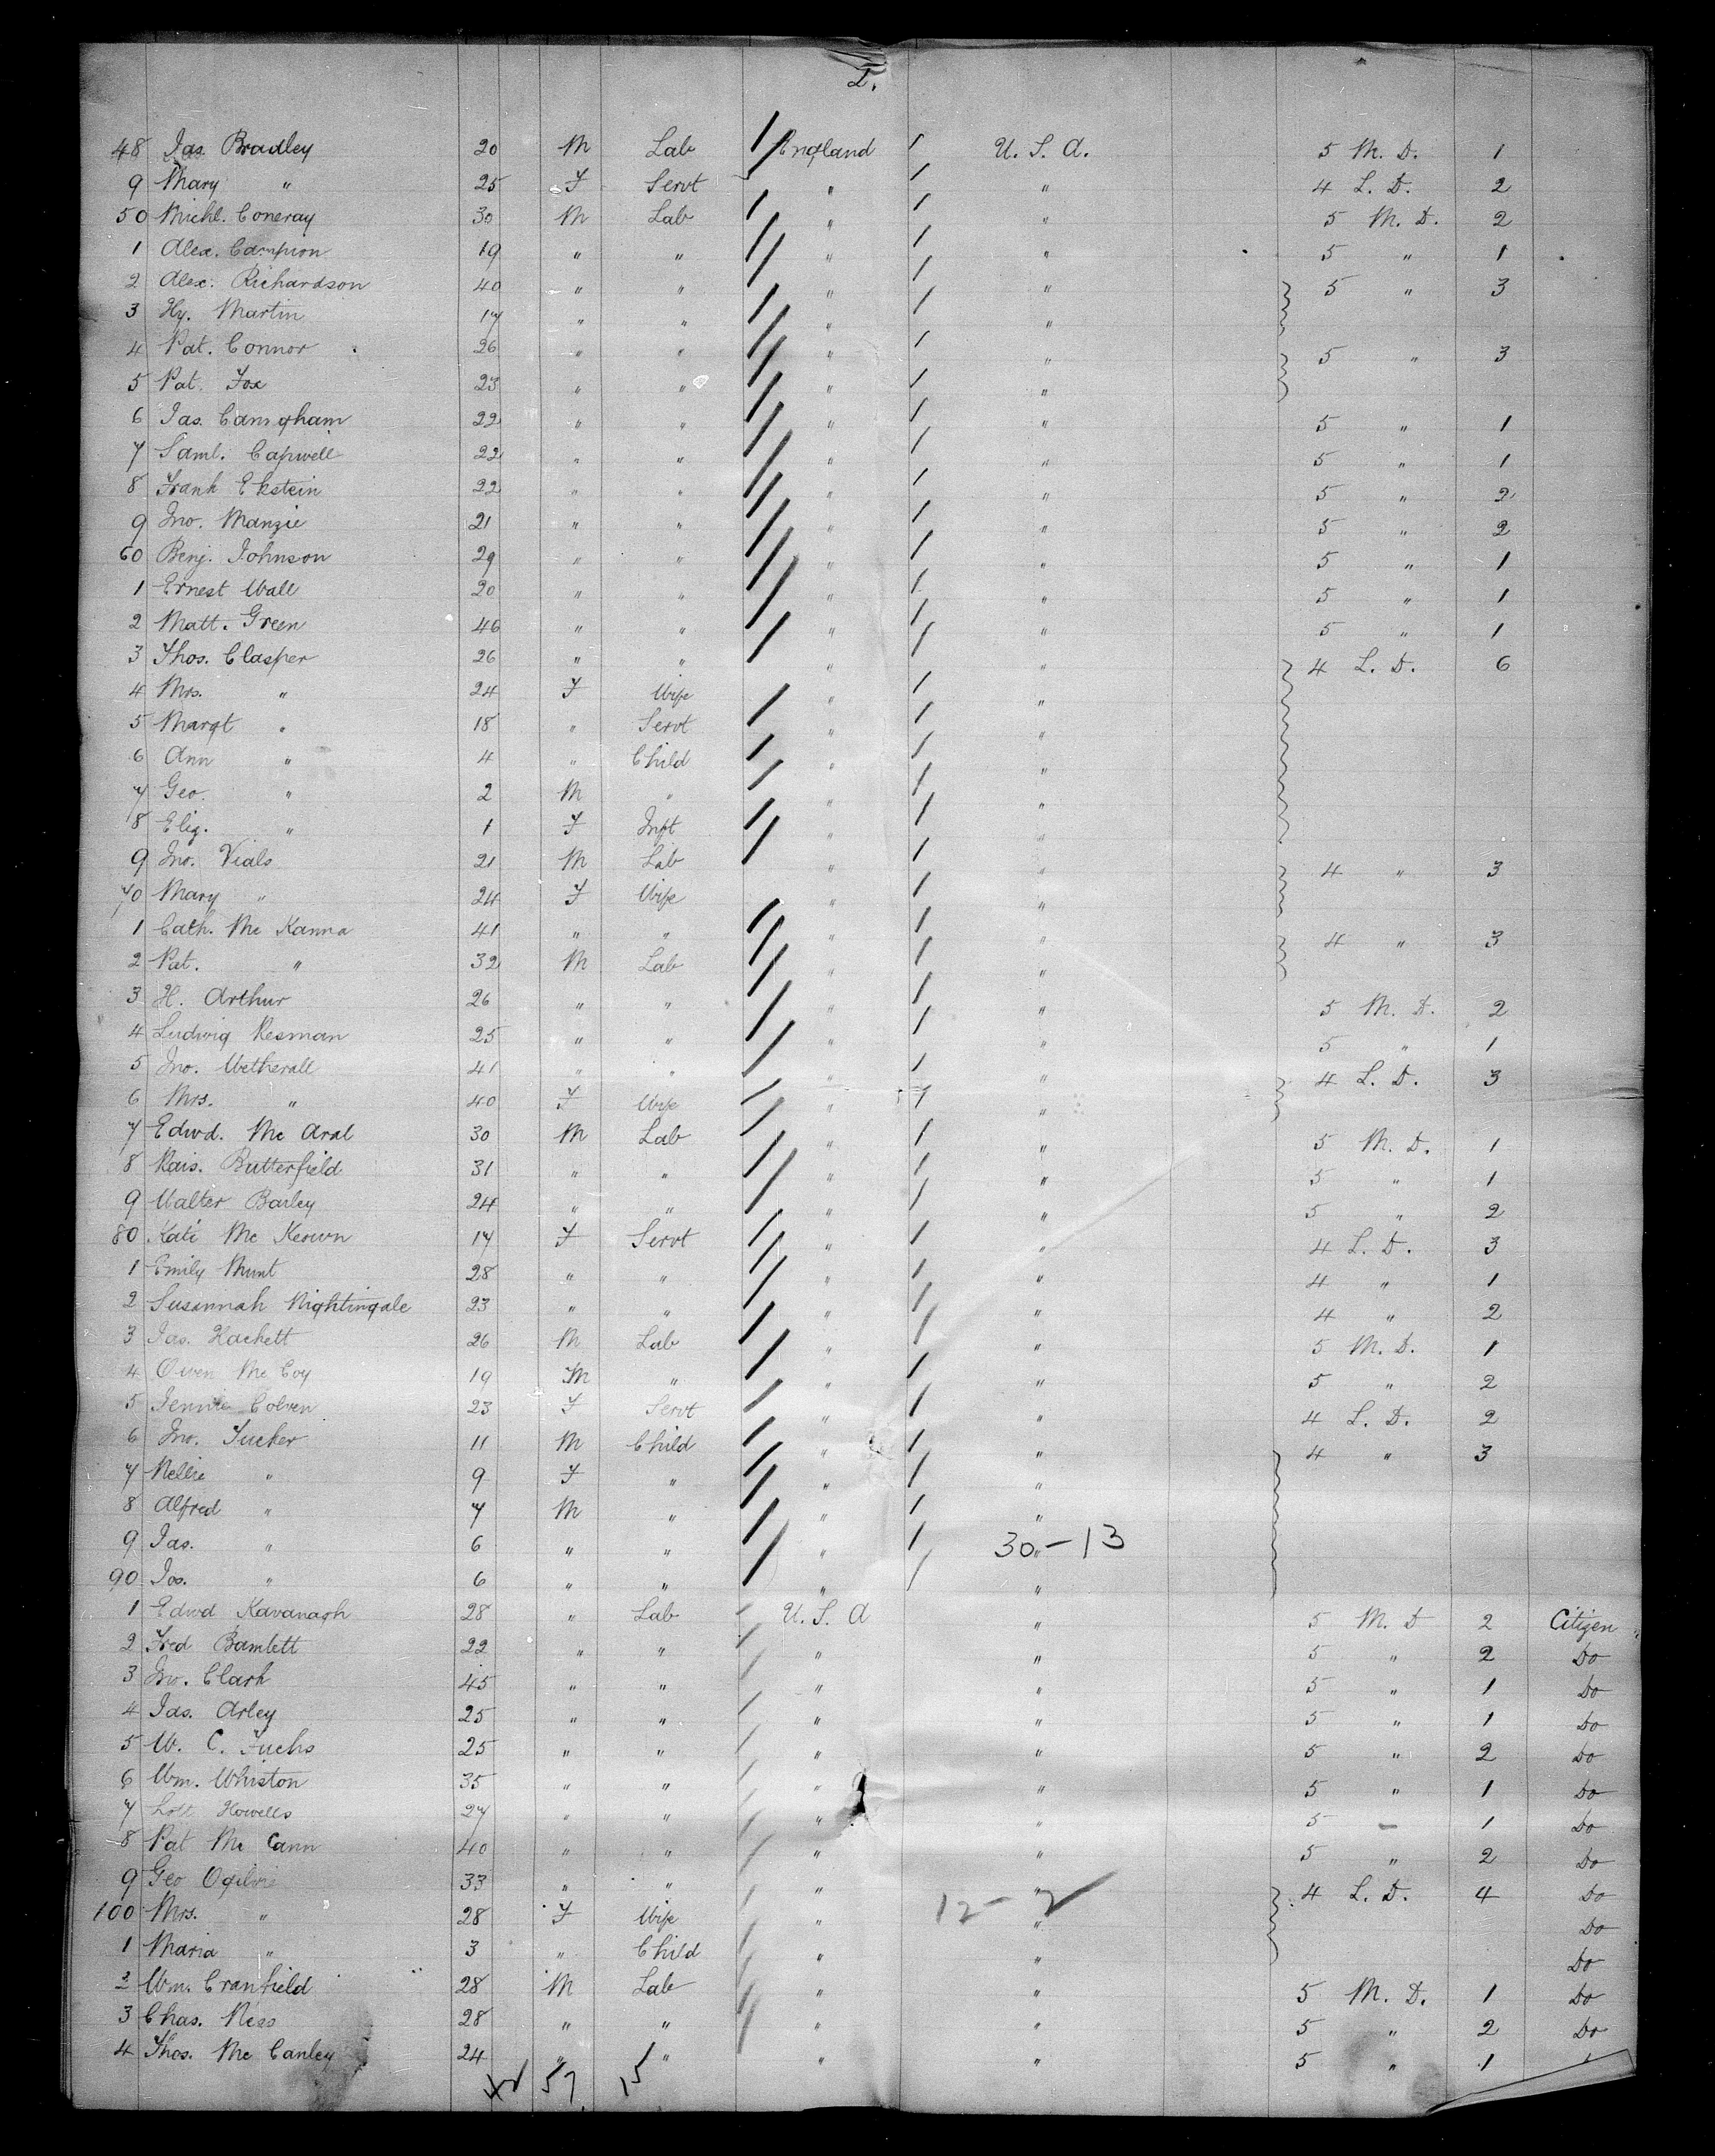 2.
48 Jas. Bradley 20 M Lab England U. S. A. 5 M. D. 1
9 Mary " 25 F Servt " " 4 L. D. 2
50 Michl. Coneray 30 M Lab " " 5 M. D. 2
1 Alex. Campion 19 " " " " 5 " 1
2 Alex. Richardson 40 " " " " 5 " 3
3 Hy. Martin 17 " " " "
4 Pat. Connor 26 " " " " 5 " 3
5 Pat. Fox 23 " " " "
6 Jas. 22 " " " " 5 " 1
7 Saml. Capwell 22 " " " " 5 " 1
8 Frank Ekstein 22 " " " " 5 " 2
9 Jno. Manzie 21 " " " " 5 " 2
60 Benj. Johnson 29 " " " " 5 " 1
1 Ernest Wall 20 " " " " 5 " 1
2 Matt. Green 46 " " " " 5 " 1
3 Thos. Clasper 26 " " " " 4 L. D. 6
4 Mrs. " 24 F Wife " "
5 Margt " 18 " Servt " "
6 Ann " 4 " Child " "
7 Geo. " 2 M " " "
8 Eliz. " 1 F Inft "
9 Jno. Vials 21 M Lab " " 4 " 3
70 Mary " 24 F Wife " "
1 Cath. Mc Kanna 41 " " " " 4 " 3
2 Pat. " 32 M Lab " "
3 H. Arthur 26 " " " " 5 M. D. 2
4 Ludwig Resman 25 " " " " 5 " 1
5 Jno. Wetherall 41 " " " " 4 L. D. 3
6 Mrs. " 40 F Wife " "
7 Edwd. Mc Aral 30 M Lab " " 5 M. D. 1
8 Butterfield 31 " " " " 5 " 1
9 Walter Barley 24 " " " " 5 " 2
80 Kate Mc Keown 17 F Servt " " 4 L. D. 3
1 Emily Munt 28 " " " " 4 " 1
2 Susannah Nightingale 23 " " " " 4 " 2
3 Jas. Hackett 26 M Lab " " 5 M. D. 1
4 Owen Mc Coy 19 M " " " 5 " 2
5 Jennie Colven 23 F Servt " " 4 L. D. 2
6 Jno. Tucker 11 M Child " " 4 " 3
7 Nellie " 9 F " " "
8 Alfred " 7 M " " "
9 Jas. " 6 " " " " 30-13
90 Jos. " 6 " " " "
1 Edwd Kavanagh 28 " Lab U. S. A " 5 M. D 2 Citizen
2 Fred Bamlett 22 " " " " 5 " 2 Do
3 Jno. Clark 45 " " " " 5 " 1 Do
4 Jas. Arley 25 " " " " 5 " 1 Do
5 W. C. Fuchs 25 " " " " 5 " 2 Do
6 Wm. Whiston 35 " " " " 5 " 1 Do
7 Howells 27 " " " " 5 - 1 Do
8 Pat Mc Cann 40 " " " " 5 " 2 Do
9 Geo Ogilvie 33 " " " " 4 L. D. 4 Do
100 Mrs. " 28 F Wife " 12-2 " Do
1 Maria " 3 " Child " " Do
2 Wm. Cranfield 28 M Lab " " 5 M. D. 1 Do
3 Chas. Ness 28 " " " " 5 " 2 Do
4 Thos. Mc Canley 24 " " " " 5 " 1
57 15